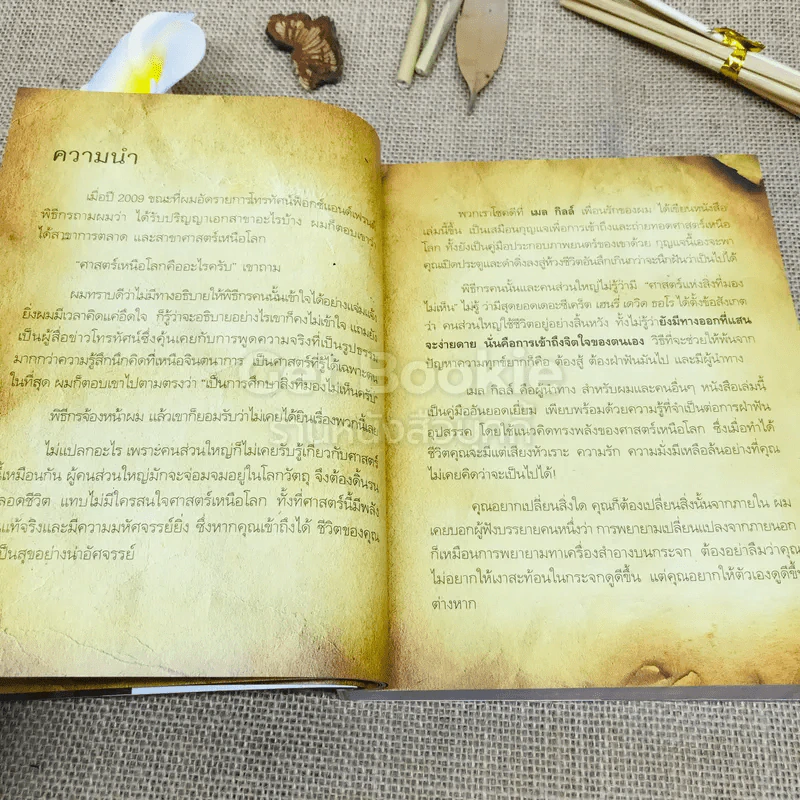 ความนำ
เมื่อปี 2009 ขณะที่ผมอัดรายการโทรทัศน์ฟ็อกซ์แอนด์เฟรนด์
พิธีกรถามผมว่า ได้รับปริญญาเอกสาขาอะไรบ้าง ผมก็ตอบเขาว่า
ได้สาขาการตลาด และสาขาศาสตร์เหนือโลก
"ศาสตร์เหนือโลกคืออะไรครับ" เขาถาม
ผมทราบดีว่าไม่มีทางอธิบายให้พิธีกรคนนั้นเข้าใจได้อย่างแจ่มแจ้ง
ยิ่งผมมีเวลาคิดแค่อึดใจ ก็รู้ว่าจะอธิบายอย่างไรเขาก็คงไม่เข้าใจ แถมยัง
เป็นผู้สื่อข่าวโทรทัศน์ซึ่งคุ้นเคยกับการพูดความจริงที่เป็นรูปธรรม
มากกว่าความรู้สึกนึกคิดที่เหนือจินตนาการ เป็นศาสตร์ที่รู้ได้เฉพาะตน
ในที่สุด ผมก็ตอบเขาไปตามตรงว่า "เป็นการศึกษาสิ่งที่มองไม่เห็นครับ"
พิธีกรจ้องหน้าผม แล้วเขาก็ยอมรับว่าไม่เคยได้ยินเรื่องพวกนี้เลย
ไม่แปลกอะไร เพราะคนส่วนใหญ่ก็ไม่เคยรับรู้เกี่ยวกับศาสตร์
นี้เหมือนกัน ผู้คนส่วนใหญ่มักจะจ่อมจมอยู่ในโลกวัตถุ จึงต้องดิ้นรน
ตลอดชีวิต แทบไม่มีใครสนใจศาสตร์เหนือโลก ทั้งที่ศาสตร์นี้มีพลัง
แท้จริงและมีความมหัศจรรย์ยิ่ง ซึ่งหากคุณเข้าถึงได้ ชีวิตของคุณ
เป็นสุขอย่างน่าอัศจรรย์
พวกเราโชคดีที่ เมล กิลล์ เพื่อนรักของผม ได้เขียนหนังสือ
เล่มนี้ขึ้น เป็นเสมือนกุญแจเพื่อการเข้าถึงและถ่ายทอดศาสตร์เหนือ
โลก ทั้งยังเป็นคู่มือประกอบภาพยนตร์ของเขาด้วย กุญแจนี้เองจะพา
คุณเปิดประตูและดำดิ่งลงสู่ห้วงชีวิตอันลึกเกินกว่าจะนึกฝันว่าเป็นไปได้
พิธีกรคนนั้นและคนส่วนใหญ่ไม่รู้ว่ามี "ศาสตร์แห่งสิ่งที่มอง
ไม่เห็น" ไม่รู้ ว่ามีสุดยอดเดอะซีเคร็ต เฮนรี่ เดวิด ธอโร ได้ตั้งข้อสังเกต
ว่า คนส่วนใหญ่ใช้ชีวิตอยู่อย่างสิ้นหวัง ทั้งไม่รู้ว่ายังมีทางออกที่แสน
จะง่ายดาย นั่นคือการเข้าถึงจิตใจของตนเอง วิธีที่จะช่วยให้พ้นจาก
ปัญหาความทุกข์ยากก็คือ ต้องสู้ ต้องฝ่าฟันมันไป และมีผู้นำทาง
เมล กิลล์ คือผู้นำทาง สำหรับผมและคนอื่นๆ หนังสือเล่มนี้
เป็นคู่มืออันยอดเยี่ยม เพียบพร้อมด้วยความรู้ที่จำเป็นต่อการฝ่าฟัน
อุปสรรค โดยใช้แนวคิดทรงพลังของศาสตร์เหนือโลก ซึ่งเมื่อทำได้
ชีวิตคุณจะมีแต่เสียงหัวเราะ ความรัก ความมั่งมีเหลือล้นอย่างที่คุณ
ไม่เคยคิดว่าจะเป็นไปได้!
คุณอยากเปลี่ยนสิ่งใด คุณก็ต้องเปลี่ยนสิ่งนั้นจากภายใน ผม
เคยบอกผู้ฟังบรรยายคนหนึ่งว่า การพยายามเปลี่ยนแปลงจากภายนอก
ก็เหมือนการพยายามทาเครื่องสำอางบนกระจก ต้องอย่าลืมว่าคุณ
ไม่อยากให้เงาสะท้อนในกระจกดูดีขึ้น แต่คุณอยากให้ตัวเองดูดีขึ้น
ต่างหาก
ร้านหนังสือ